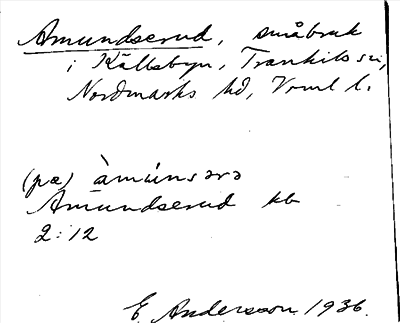 Amundserud, småbruk
i Källsbyn, Trankils sn,
Nordmarks hd, Vrml l.
(pæ) àmúnsərə
Amundserud kb
2:12
E. Andersson 1936.